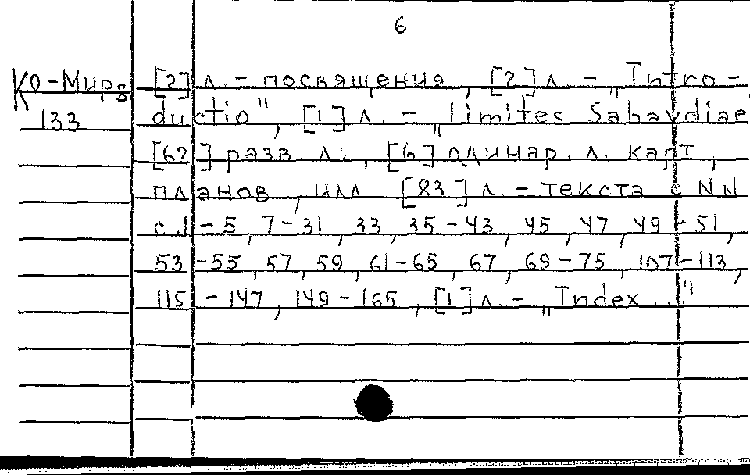 6
Ко-Мира [2] л. - посвящения, [2] л. - „Intro-
133 ductio", [1] л. - „Limites Sabaudiae
[62] разв. л., [6] одинар. л. карт,
планов, илл [83] л. - текста с NN
с.1-5, 7-31, 33, 35-43, 45, 47, 49-51,
53-55, 57, 59, 61-65, 67, 69-75, 107-113,
115-147, 149-165, [1] л. - „Index..."